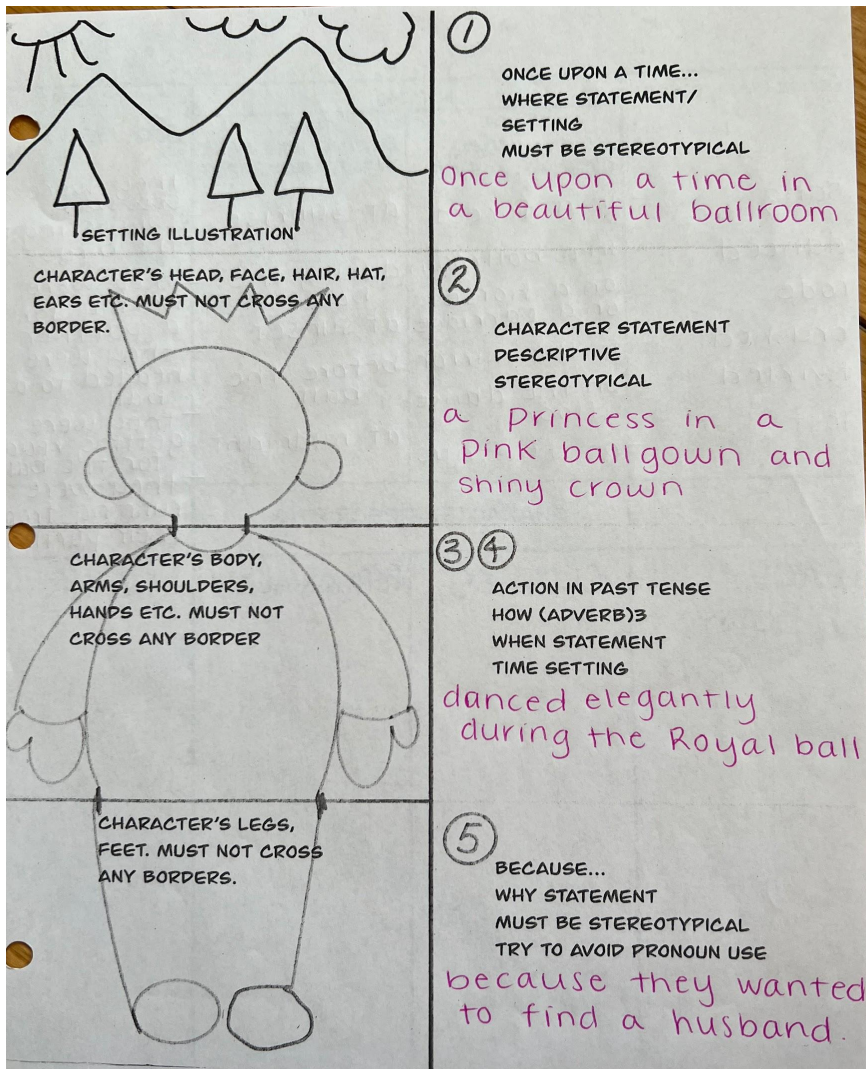 SETTING ILLUSTRATION
CHARACTER'S HEAD, FACE, HAIR, HAT,
EARS ETC. MUST NOT CROSS ANY
BORDER.
CHARACTER'S BODY,
ARMS, SHOULDERS,
HANDS ETC. MUST NOT
CROSS ANY BORDER
CHARACTER'S LEGS,
FEET. MUST NOT CROSS
ANY BORDERS.
1
ONCE UPON A TIME...
WHERE STATEMENT/
SETTING
MUST BE STEREOTYPICAL
Once upon a time in
a beautiful ballroom
2
CHARACTER STATEMENT
DESCRIPTIVE
STEREOTYPICAL
a Princess in a
pink ballgown and
shiny crown
3 4
ACTION IN PAST TENSE
HOW (ADVERB)3
WHEN STATEMENT
TIME SETTING
danced elegantly
during the Royal ball
5
BECAUSE...
WHY STATEMENT
MUST BE STEREOTYPICAL
TRY TO AVOID PRONOUN USE
because they wanted
to find a husband.